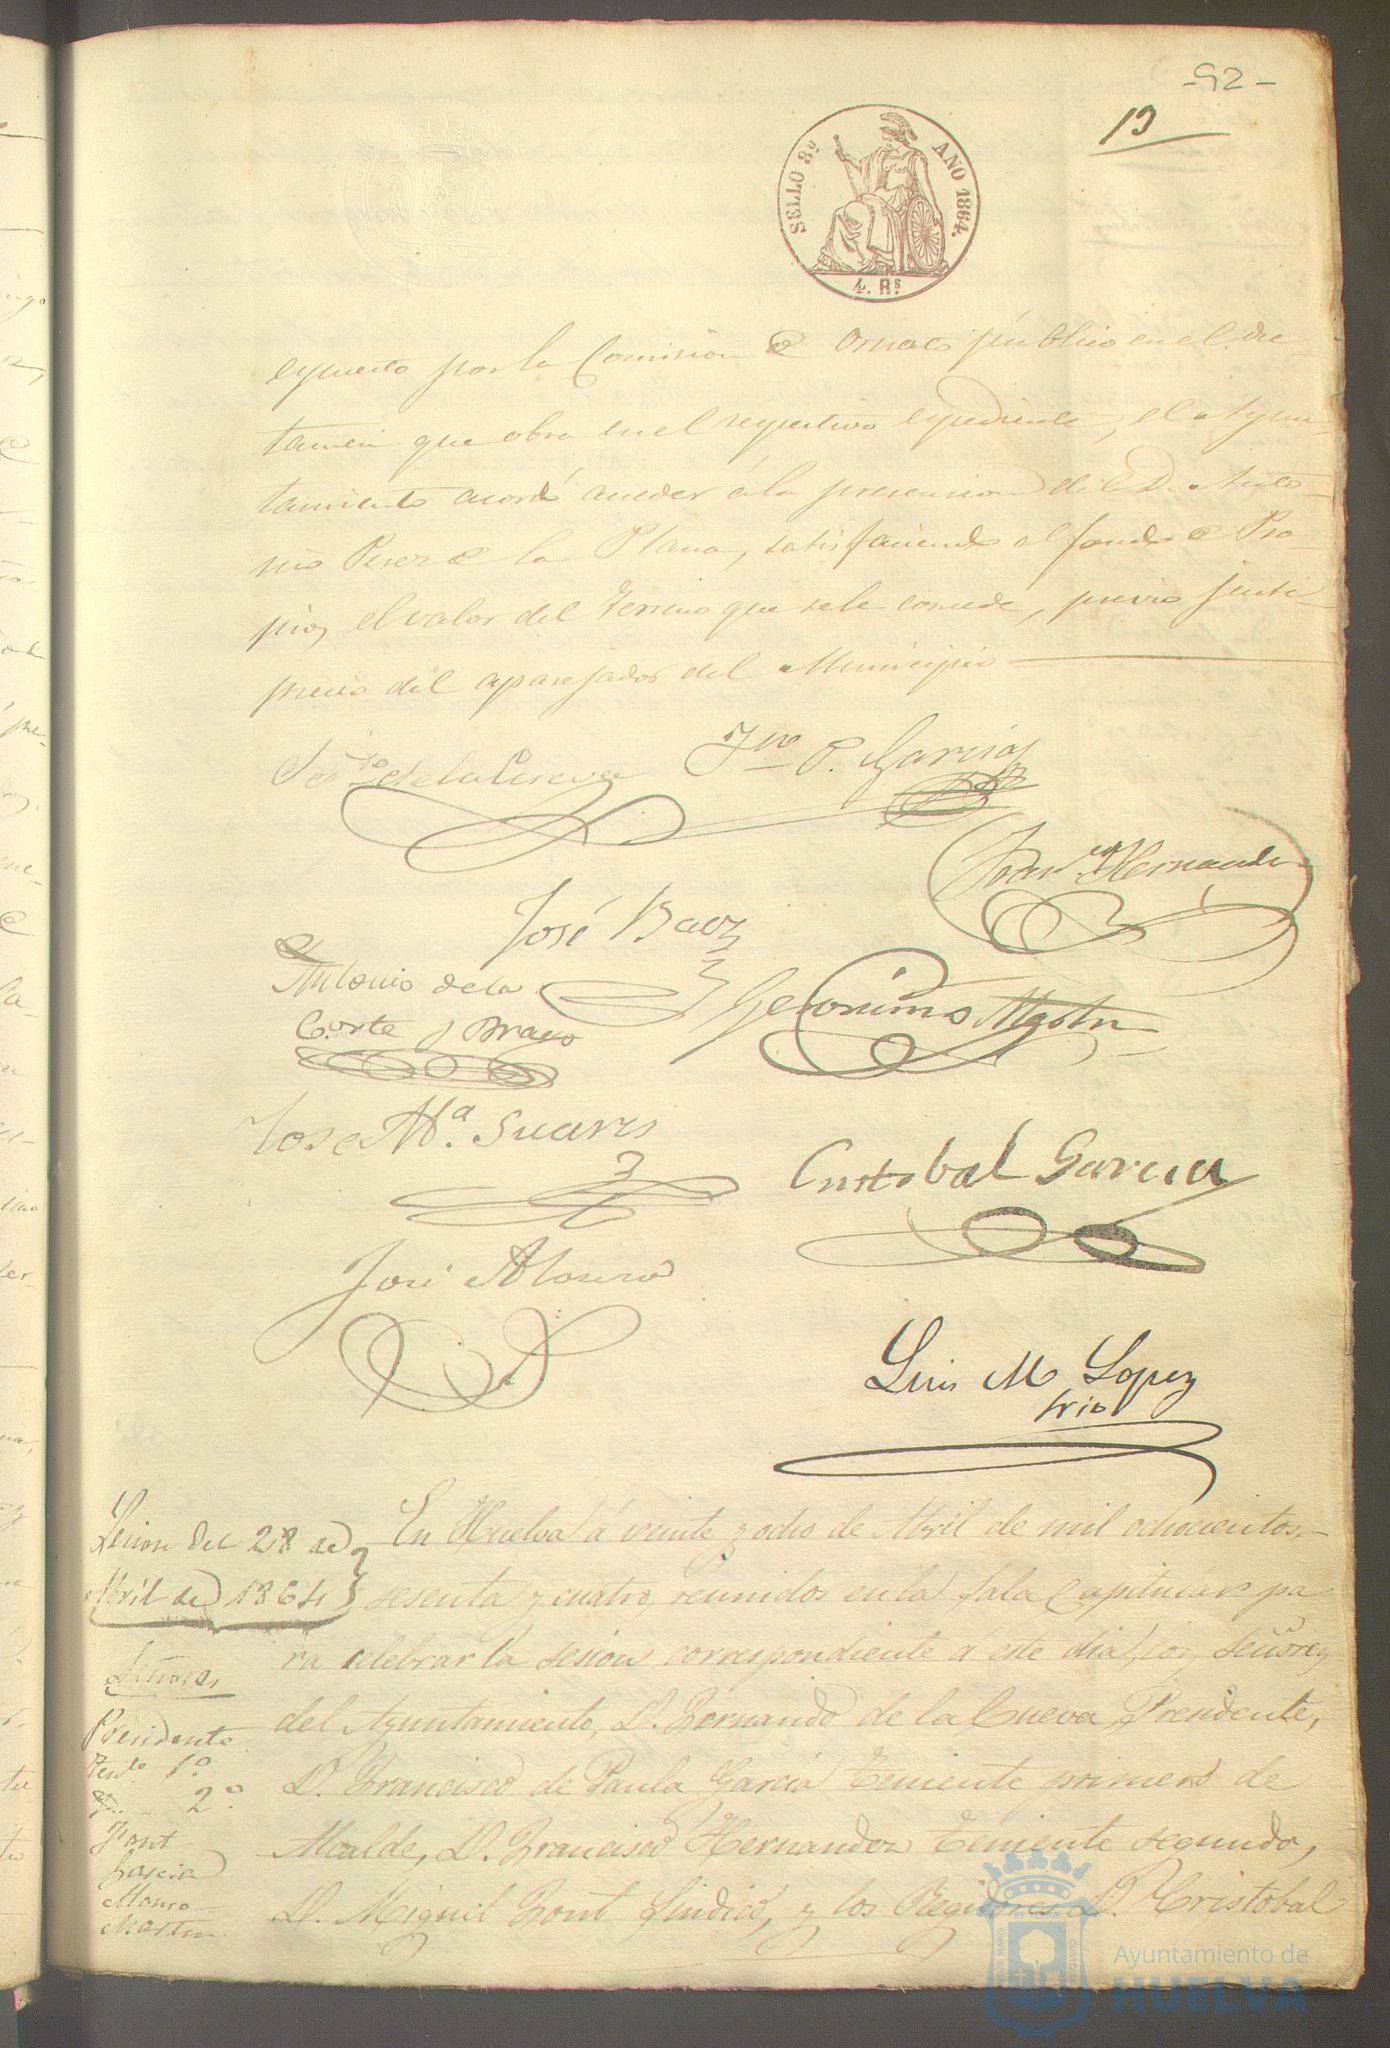 -92-
19
SELLO 8º AÑO 1864.
4. Rs
espuesto por la Comision de Ornato público en el dic
tamen que obra en el respectivo espediente, el Ayun-
tamiento acordó acceder á la pretension del D. Anto-
nio Perez de la Plana, satisfaciendo al fondo de Pro-
pios, el valor del terreno que se le concede, previo justi-
precio del aparejador del Municipio
Ferdo. de la Cueva
Fco P. Garcia
Franco. Hernandez
José Baez
Antonio de la
Corte y Bravo
Geronimo Martin
Jose Mª. Suares
Cristobal Garcia
José Alonso
Luis M Lopez
srio
Sesion del 28 de
Abril de 1864
En Huelva á veinte y ocho de Abril de mil ochocientos
sesenta y cuatro, reunidos en la Sala Capitular pa
ra celebrar la sesion correspondiente á este dia, los señores
del Ayuntamiento, D. Fernando de la Cueva, Presidente,
D. Francisco de Paula Garcia Teniente primero de
Alcalde, D. Francisco Hernandez Teniente segundo,
D. Miguel Font Sindico, y los Regidores D. Cristobal
Señores
Presidente
Tente. 1º
2º
Font
Garcia
Alonso
Martin
Ayuntamiento de
HUELVA